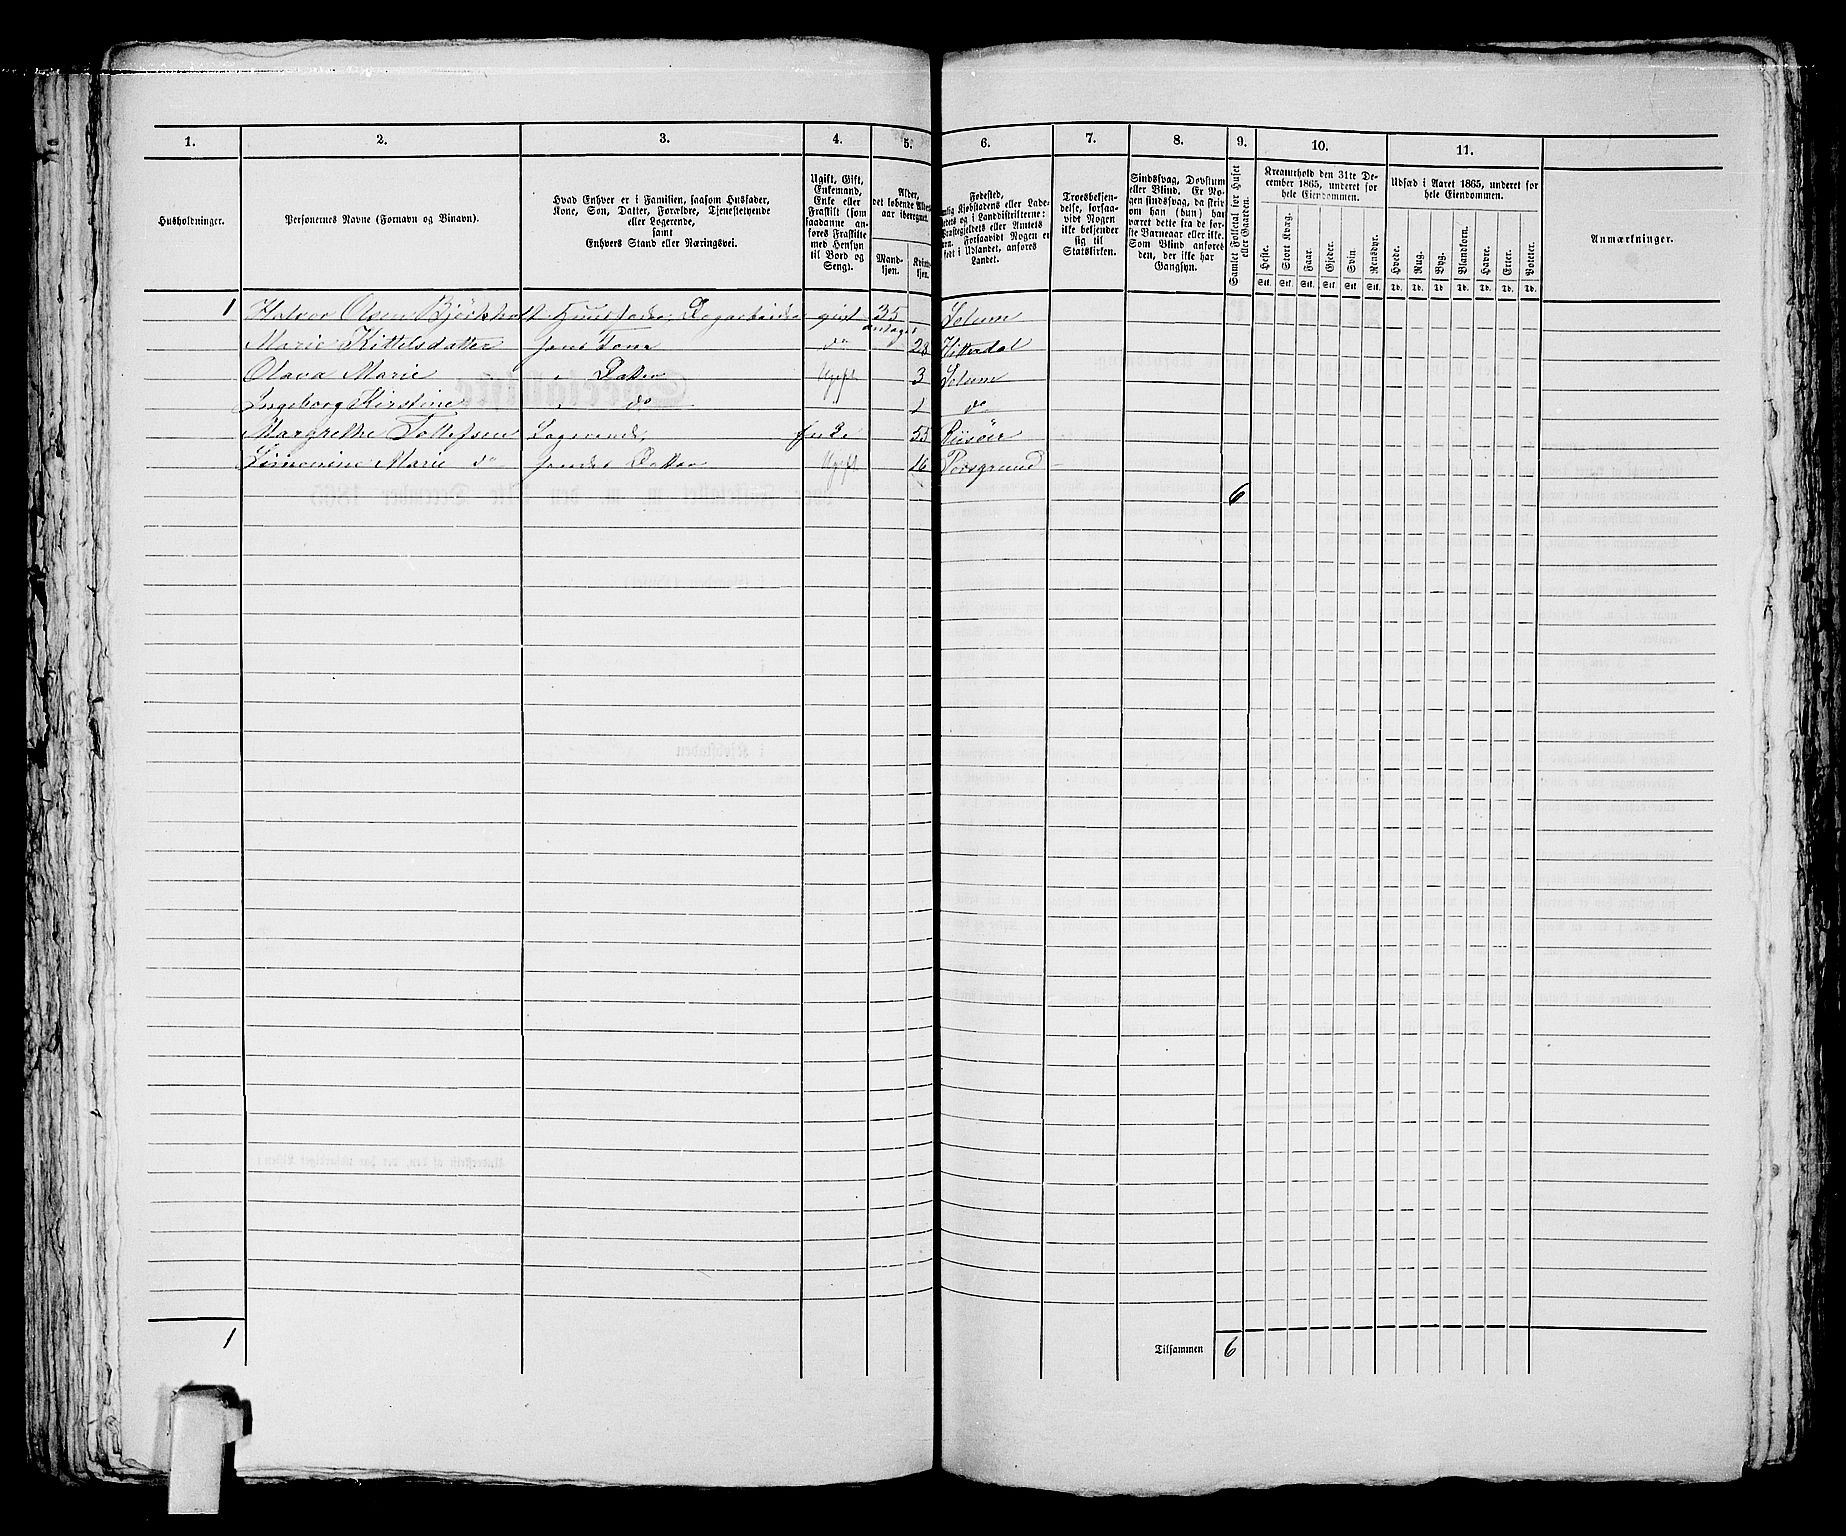 1. 2. 3. 4. 5. 6. 7. 8. 9. 10. 11.
Husholdninger.
Personernes Navne (Fornavn og Binavn).
Hvad Enhver er i Familien, saasom Husfader,
Kone, Søn, Datter, Forældre, Tjenestetyende
eller Logerende,
samt
Enhvers Stand eller Næringsvei.
Ugift, Gift,
Enkemand,
Enke eller
Fraskilt (som
saadanne an-
føres Fraskilte
med Hensyn
til Bord og
Seng).
Alder,
det løbende Alders-
aar iberegnet.
Mand-
kjøn.
Kvind-
kjøn.
Fødested,
Kjøbstadens eller Lade-
og i Landdistrikterne:
Præstegjeldets eller Amtets
Forsaavidt Nogen er
født i Udlandet, anføres
Landet.
Troesbekjen-
delse, forsaa-
vidt Nogen
ikke bekjender
sig til
Statskirken.
Sindssvag, Døvstum
eller Blind. Er No-
gen sindssvag, da skriv
om han (hun) har
været dette fra de før-
ste Barneaar eller ikke.
Som Blind anføres
den, der ikke har
Gangsyn.
Samlet Folketal for Huset
eller Gaarden.
Kreaturhold den 31te De-
cember 1865, underet for
hele Eiendommen.
Heste. Stort Kvæg. Faar. Gjeder. Svin. Rensdyr.
Stk. Stk. Stk. Stk. Stk. Stk.
Udsæd i Aaret 1865, underet for
hele Eiendommen.
Hvede. Rug. Byg. Blandkorn. Havre. Erter. Poteter.
Td. Td. Td. Td. Td. Td. Td.
Anmærkninger.
1 Halvor Olsen Bjørkholt Huusfader, Dagarbeider gift 35 Solum
antaget
Marie Kittelsdatter hans Kone do 28 Hitterdal
Olava Marie " Datter Ugift 3 Solum
Ingeborg Kirstine " do " 1 do
Margrethe Tollefsen Logerende, Enke 55 Riisøer
Simonine Marie do hendes Datter Ugift 16 Porsgrund
6
1 Tilsammen 6